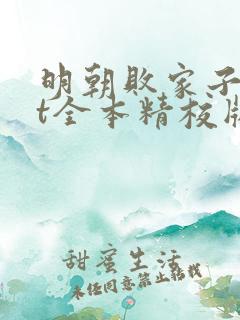 明朝败家子
t全本精校版
甜蜜生活
未经同意禁止截我